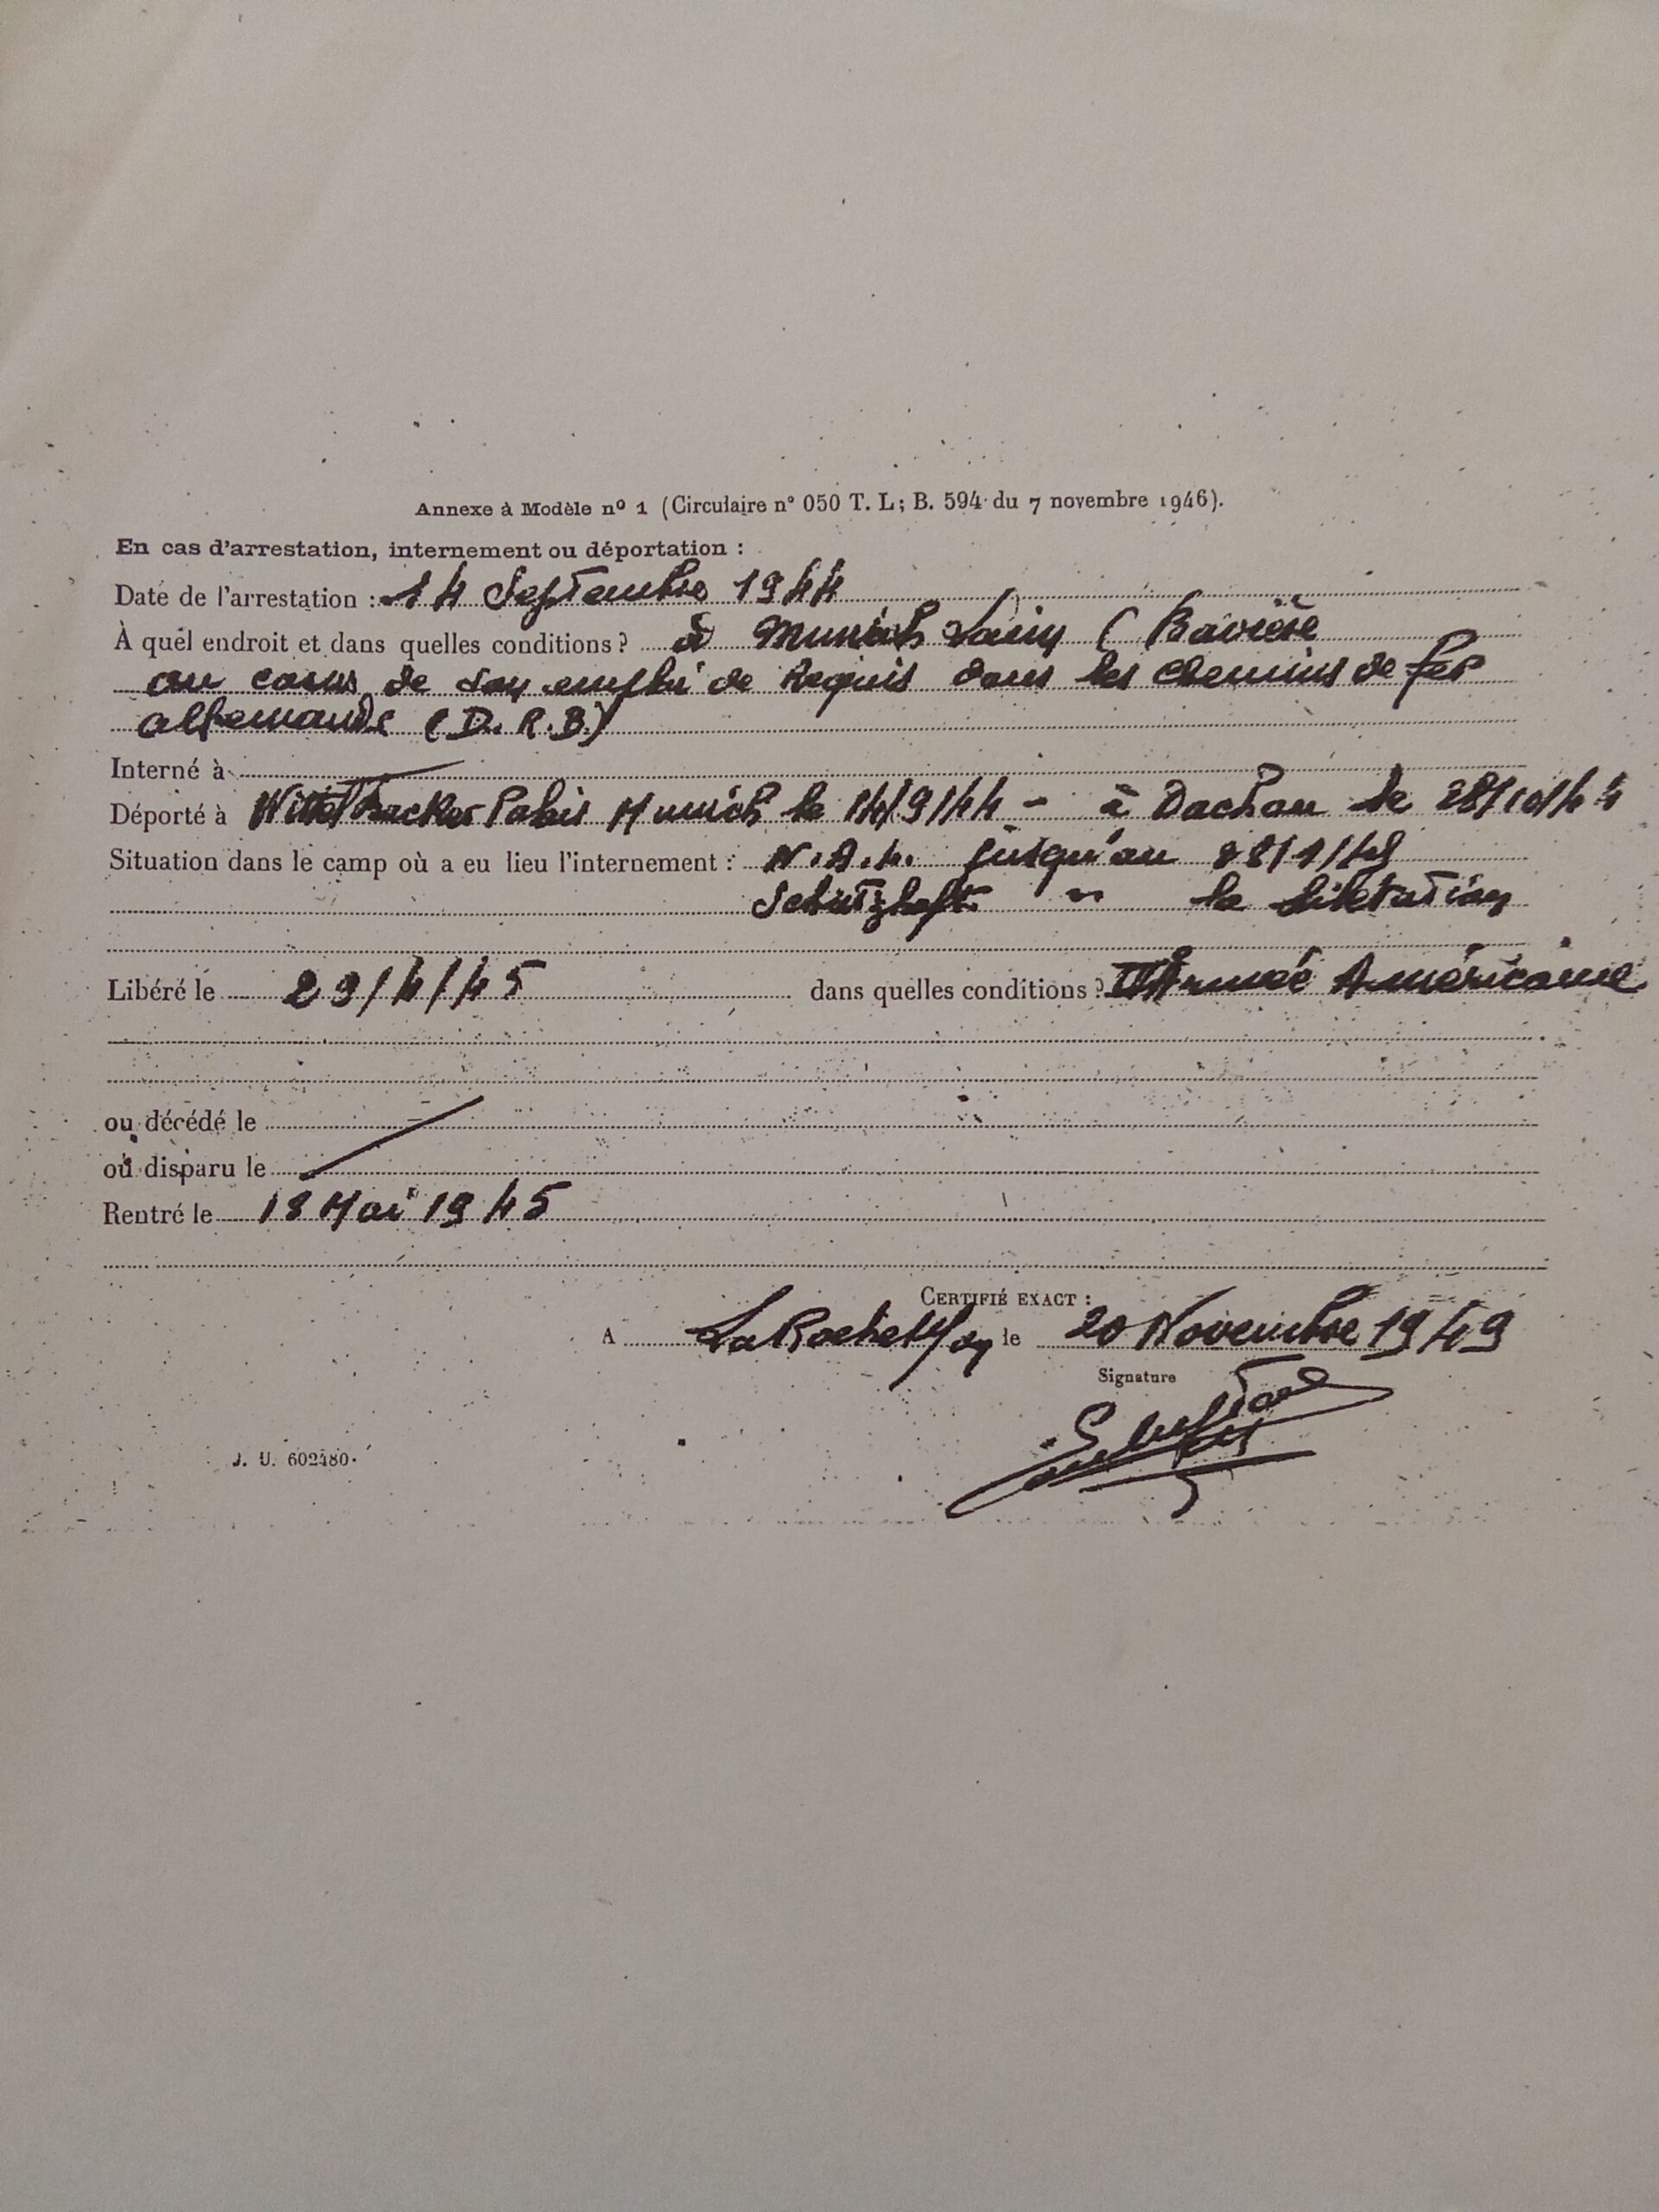 Annexe à Modèle nº 1 (Circulaire n° 050 T. L; B. 594 du 7 novembre 1946).
En cas d'arrestation, internement ou déportation :
Date de l'arrestation : 14 Septembre 1944
À quel endroit et dans quelles conditions ? à Munich Laim ( Bavière
au cours de son emploi de Requis dans les chemins de fer
allemands (D.R.B.)
Interné à
Déporté à Wittelsbacker Palais Munich le 14/9/44 - à Dachau le 28/10/44
Situation dans le camp où a eu lieu l'internement : N.A.L. jusqu'au 28/1/45
Schutzhaft " la libération
Libéré le 29/4/45 dans quelles conditions ? Armée Américaine
ou décédé le
ou disparu le
Rentré le 18 Mai 1945
CERTIFIÉ EXACT :
A La Roche s/yon le 20 Novembre 1949
Signature
J. U. 602480.